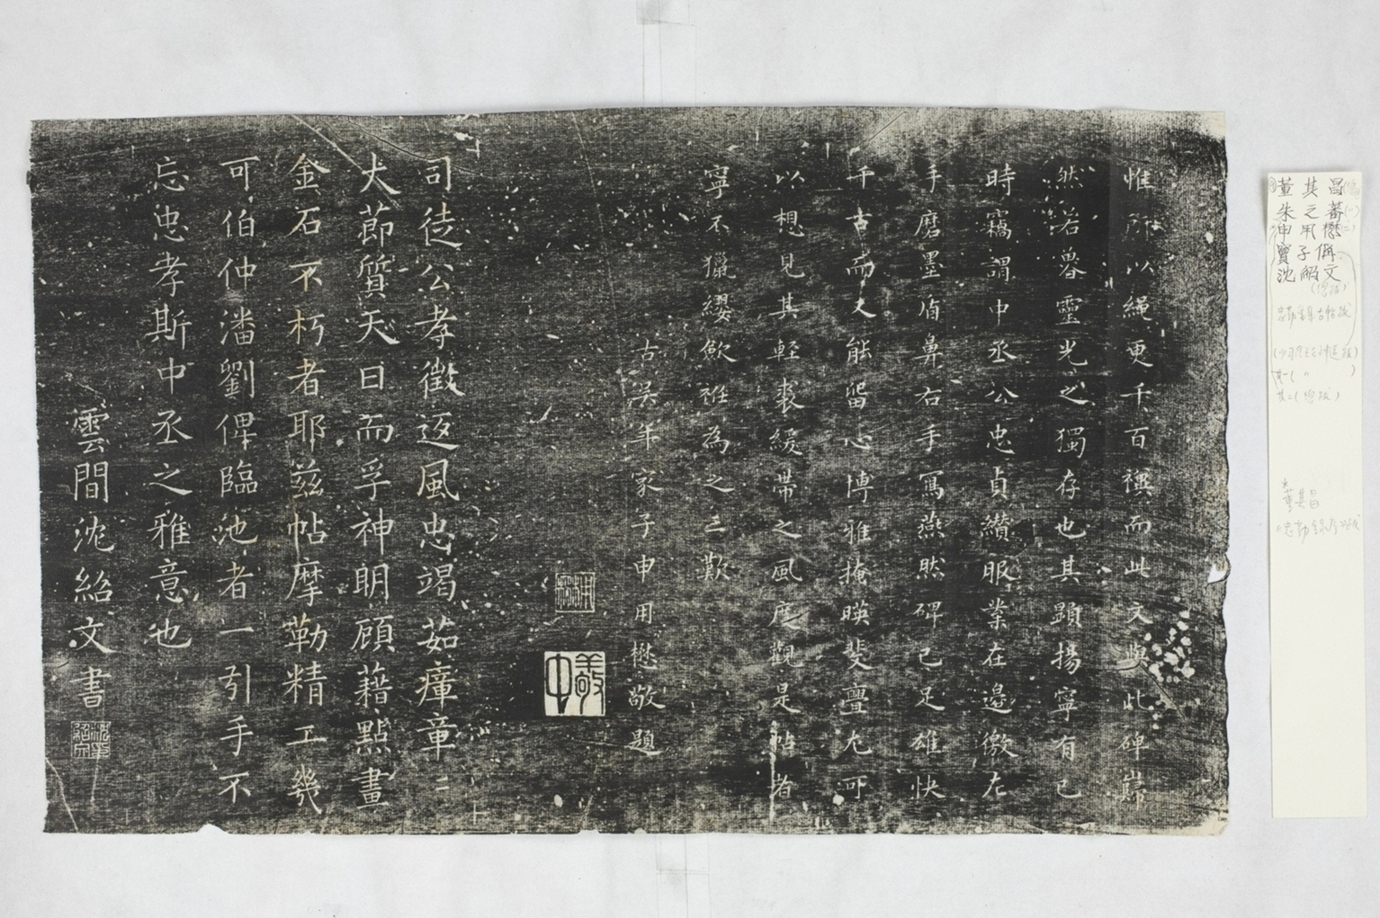 惟所以繩更千百禩而此文與此碑巋
然若魯靈光之獨存也其顯揚寧有已
時竊謂中丞公忠貞纘服業在邊徼左
手磨墨盾鼻右手寫燕然碑已足雄快
千古而又能留心博雅掩暎斐亹尤可
以想見其輕裘緩帶之風度觀是帖者
寧不獵纓歛袵為之三歎
古吴年家子申用懋敬題
用懋
敬中
司徒公孝徵返風忠竭茹瘴章〻
大節質天日而孚神明頋藉㸃畫
金石不朽者耶兹帖摩勒精工幾
可伯仲潘劉俾臨池者一引手不
忘忠孝斯中丞之雅意也
雲間沈紹文書
董其昌
朱之蕃
申用懋
沈 文
董其昌